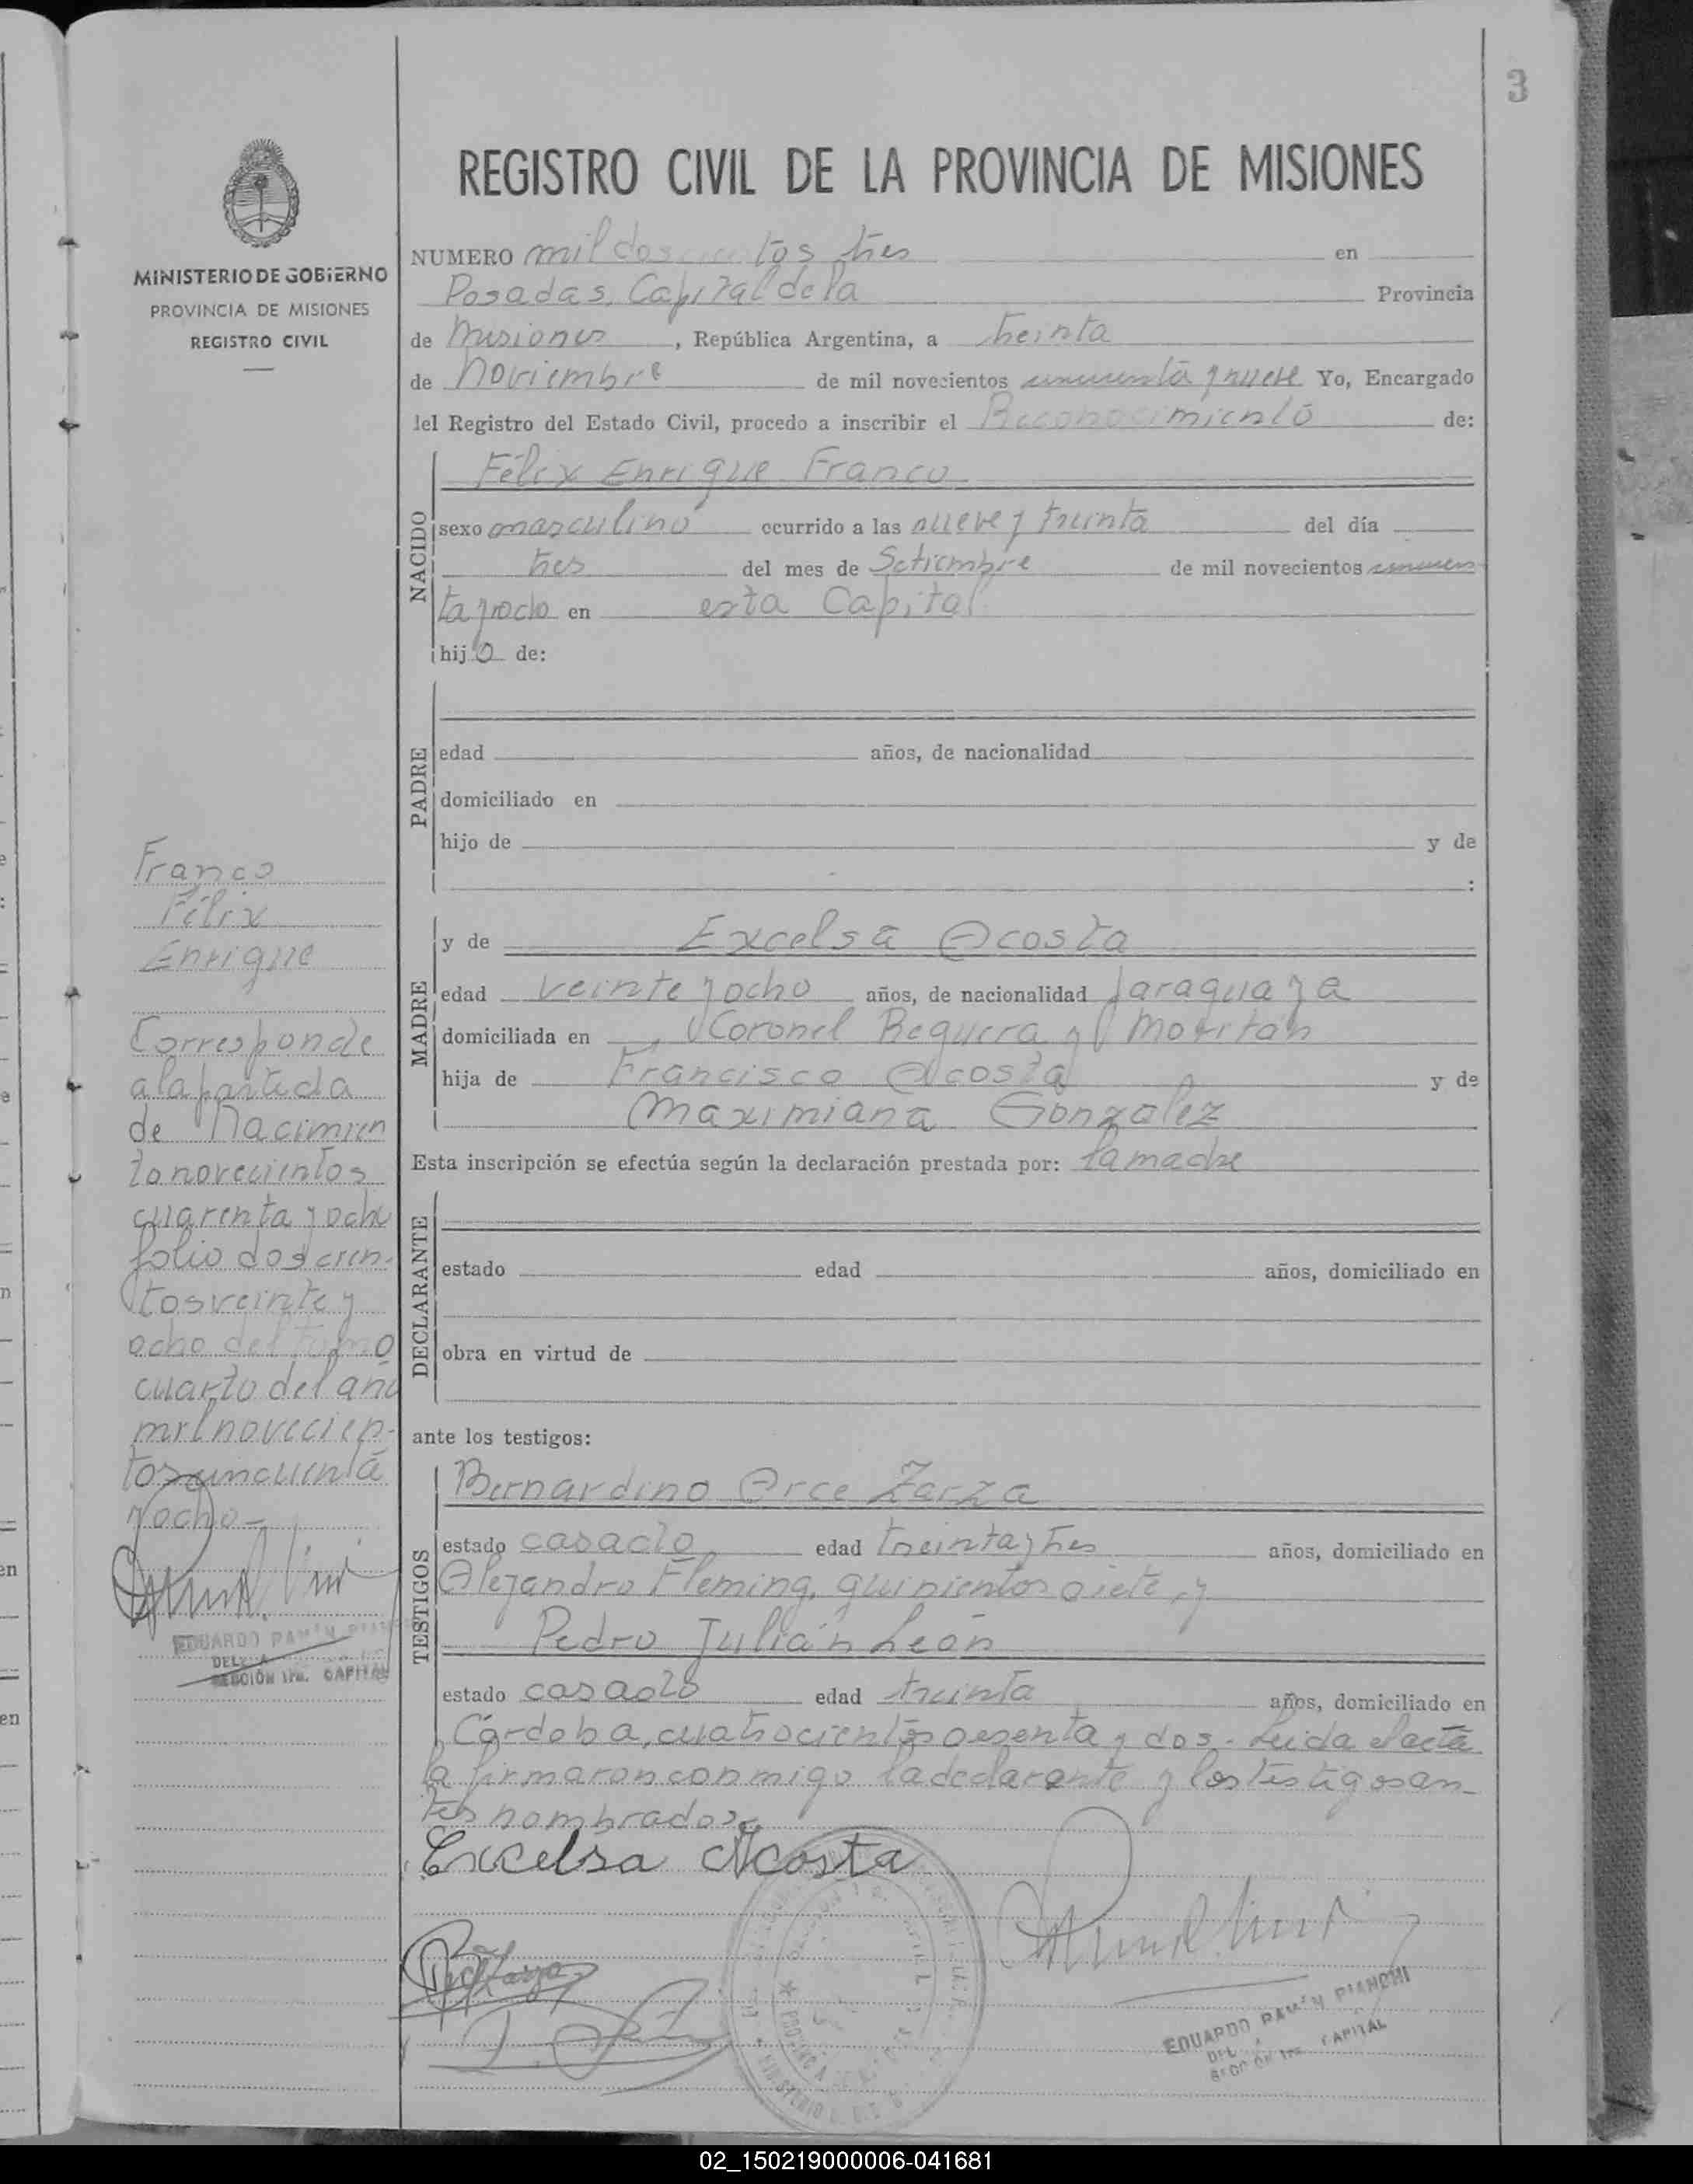 3
REGISTRO CIVIL DE LA PROVINCIA DE MISIONES
MINISTERIO DE GOBIERNO
PROVINCIA DE MISIONES
REGISTRO CIVIL
NUMERO mil doscientos tres en
Posadas, Capital de la Provincia
de Misiones, República Argentina, a treinta
de Noviembre de mil novecientos cincuenta y nueve Yo, Encargado
del Registro del Estado Civil, procedo a inscribir el Reconocimiento de:
NACIDO
Félix Enrique Franco
sexo masculino ocurrido a las nueve y treinta del día
tres del mes de Setiembre de mil novecientos cincuen
ta y ocho en esta Capital
hijo de:
PADRE
edad años, de nacionalidad
domiciliado en
hijo de y de
:
MADRE
y de Excelsa Acosta
edad veinte y ocho años, de nacionalidad paraguaya
domiciliada en Coronel Reguera y Moritán
hija de Francisco Acosta y de
Maximiana Gonzalez
Esta inscripción se efectúa según la declaración prestada por: la madre
DECLARANTE
estado edad años, domiciliado en
obra en virtud de
ante los testigos:
TESTIGOS
Bernardino Arce Zarza
estado casado edad treinta y tres años, domiciliado en
Alejandro Fleming, quinientos siete, y
Pedro Julián León
estado casado edad treinta años, domiciliado en
Córdoba, cuatrocientos sesenta y dos.- Leida el acta
la firmaron conmigo la declarante y los testigos an-
tes nombrados
Excelsa Acosta
EDUARDO RAMÓN PIANCHI
DEL
SECCIÓN 1ra. CAPITAL
Franco
Félix
Enrique
Corresponde
a la partida
de Nacimien
to novecientos
cuarenta y ocho
folio doscien-
tos veinte y
ocho del tomo
cuarto del año
mil novecien-
tos cincuenta
y ocho-
EDUARDO RAMÓN
DEL
SECCIÓN 1ra. CAPITAL
02_150219000006-041681